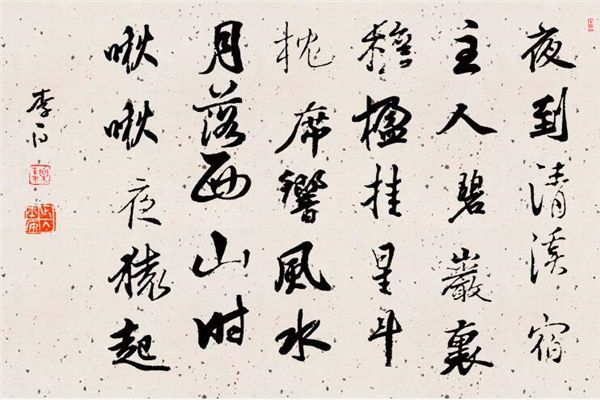 夜到清溪宿
主人碧巖裏
檐楹挂星斗
枕席響風水
月落西山时
啾啾夜猿起
李白